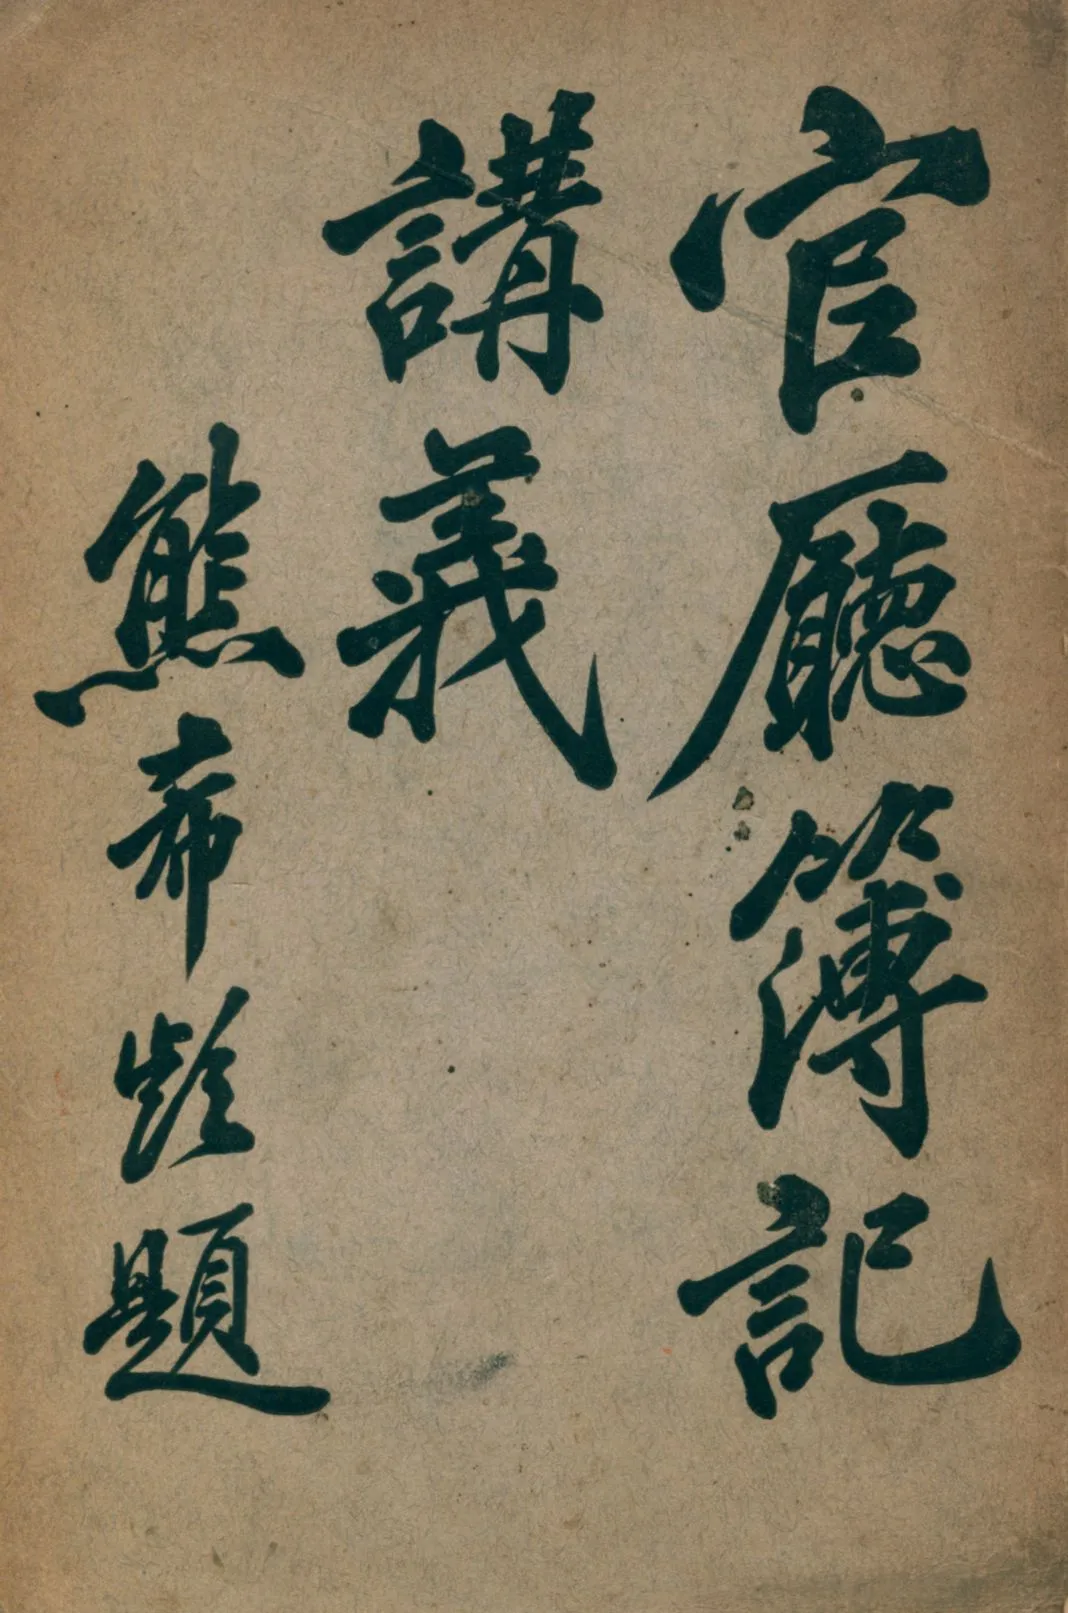 官廳簿記
講義
熊希齡題